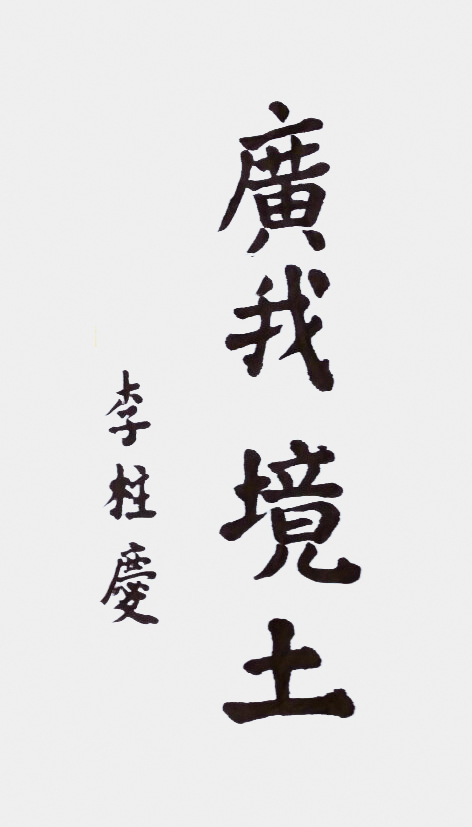 廣我境土
李柱慶